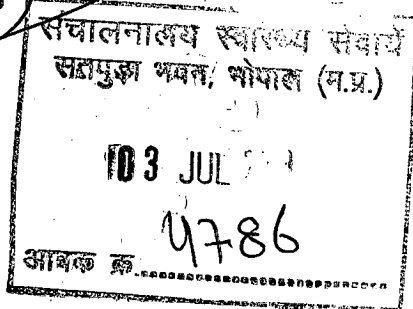 संचालनालय स्वास्थ्य सेवायें
सतपुड़ा भवन, भोपाल (म.प्र.)
03 JUL
आवक क्र. 4786